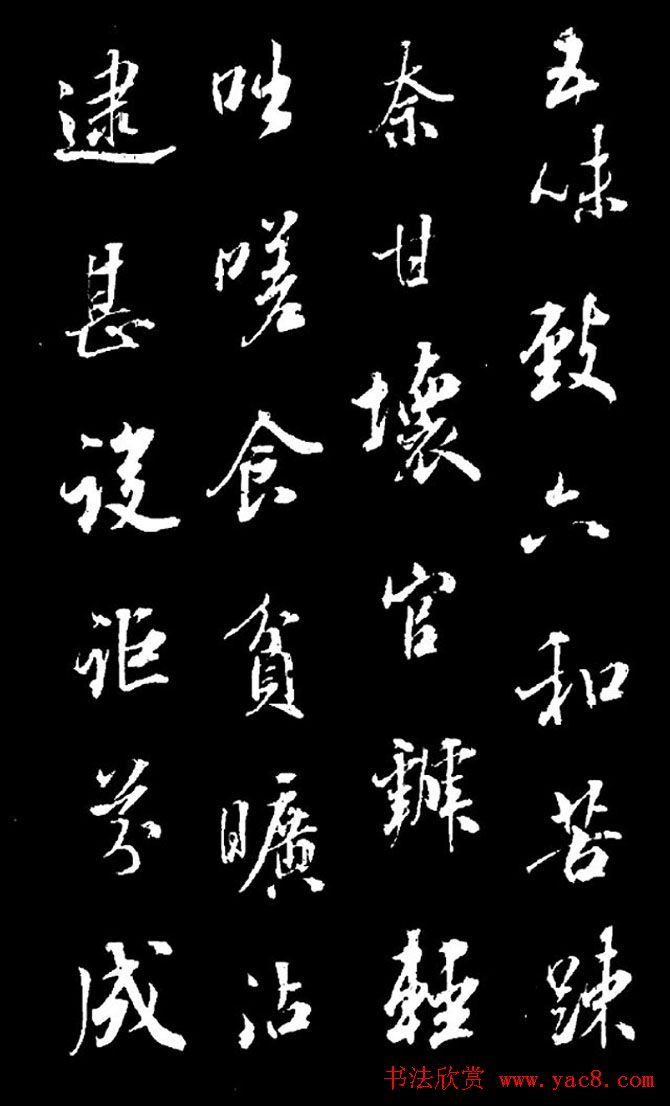 五味致六和苦踈
奈甘壞官輕
咄嗟食貧曠沾
逮甚設詎芬成
书法欣赏 www.yac8.com